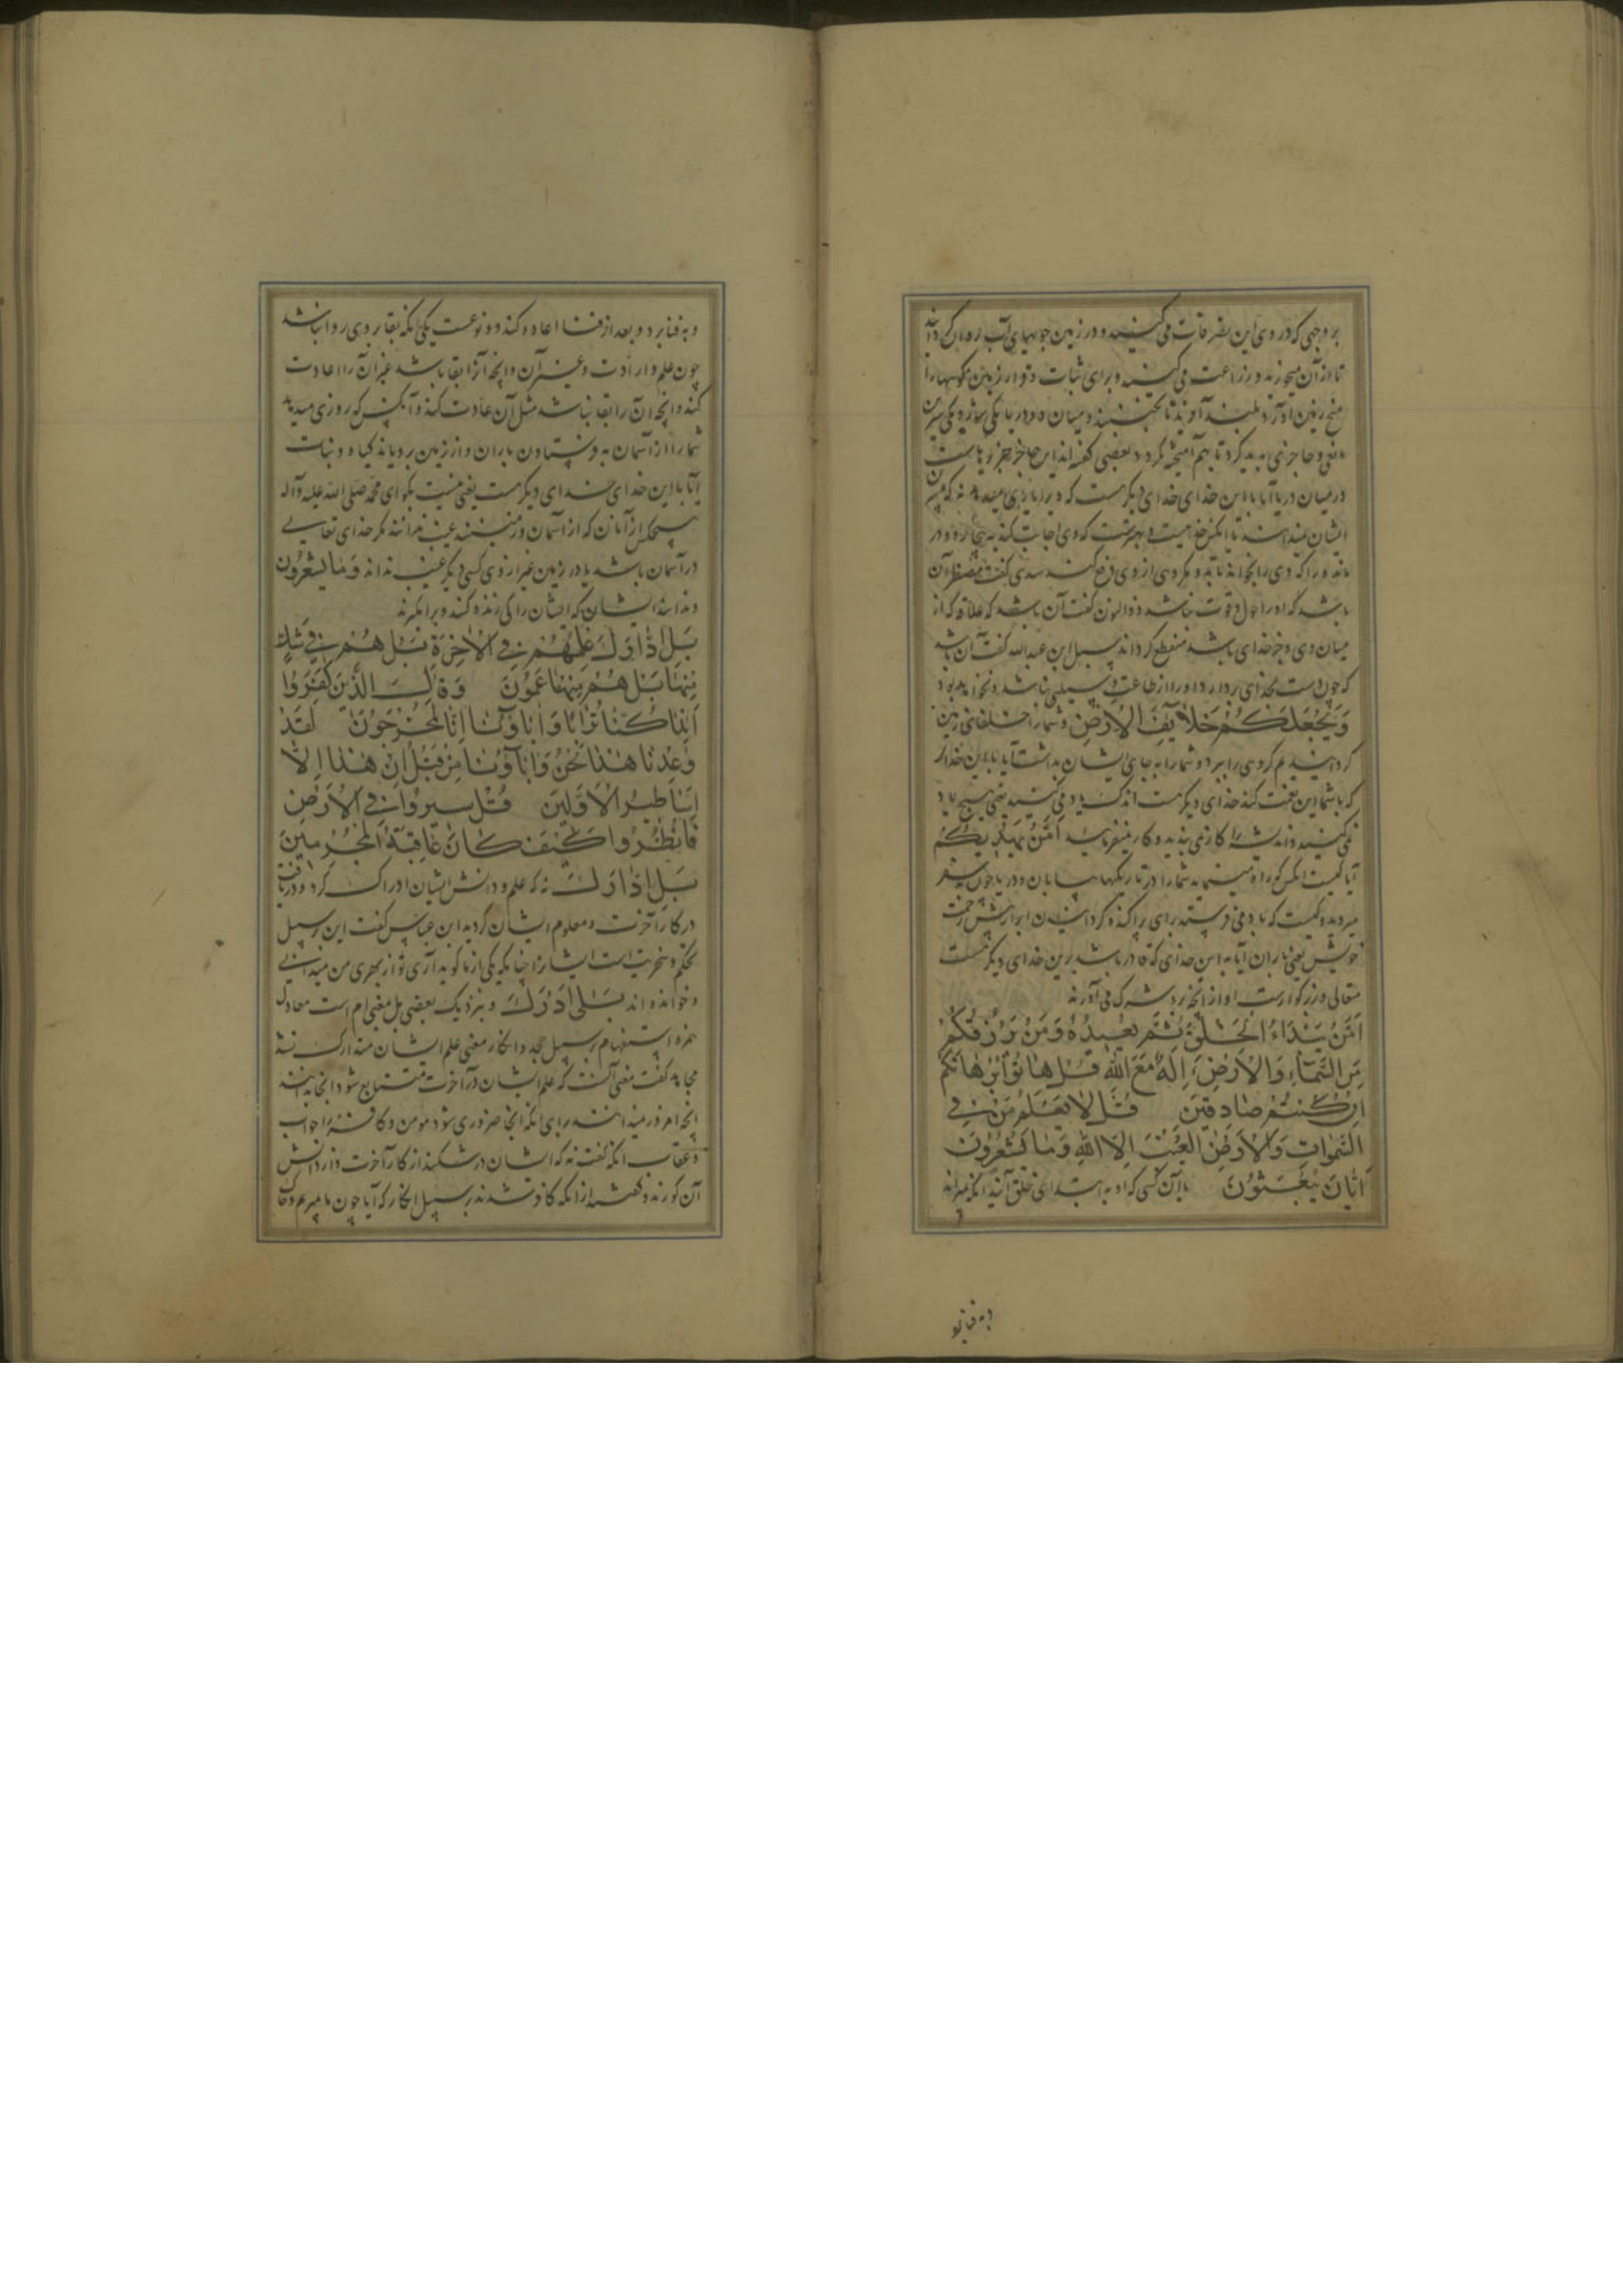 بر وجهی که در وی این تصرفات می کنید و در زمین جویهای آب روان کرداند
تا از آن میخورند و زراعت می کنند و برای ثبات و قرار زمین کوهها را
میخ زمین او کرد بلند آورند تا نجنبند و میان دو دریا یکی شور و یکی شیرین
مانعی و حاجزی پدید کرد تا بهم آمیخته نکردد بعضی کفته اند این حاجز جزیرهاست
در میان دریا آیا با این خدای خدای دیکر هست که ویرا یاری میدهد نه که بیشترین
ایشان نمیدانند یا آنکس خدا نیست و بهتر نیست که وی اجابت کند بیچاره و در
مانده را که وی را بخواند تا بدو مکروهی از وی دفع کند سدی کفت مضطر آن
باشد که او را حول و قوت نباشد ذوالنون کفت آن باشد که علاقه که از
میان وی و جز خدای باشد منقطع کرداند سهل ابن عبدالله کفت آن باشد
که چون دست بخدای بردارد او را از طاعت وسیلتی نباشد و نخواهد بود
وَيَجْعَلُكُمْ خُلَفَاءَ الْأَرْضِ و شما را خلفای زمین
کردانید هم کروهی را ببرد و شما را به جای ایشان بداشت آیا با این خدا
که با شما این نعمت کند خدای دیکر هست اندک یاد می کنید یعنی هیچ یاد
نمی کنید و اندیشه را کار نمی بندید و کار نمیفرمایید أَمَّنْ يَهْدِيكُمْ
آیا کیست آنکس کو راه مینماید شما را در تاریکیهای بیابان و دریا چون سفر
میروید و کیست که باد می فرستد برای پراکنده کردانیدن ابر از پیش رحمت
خویش یعنی باران آیا به این خدای که قادر باشد برین خدای دیکر نیست
متعالی و بزرکوارست او از آنچه بدو شرک می آورند
أَمَّنْ يَبْدَأُ الْخَلْقَ ثُمَّ يُعِيدُهُ وَمَنْ يَرْزُقُكُمْ
مِنَ السَّمَاءِ وَالْأَرْضِ أَإِلَٰهٌ مَعَ اللَّهِ قُلْ هَاتُوا بُرْهَانَكُمْ
إِنْ كُنْتُمْ صَادِقِينَ قُلْ لَا يَعْلَمُ مَنْ فِي
السَّمَوَاتِ وَالْأَرْضِ الْغَيْبَ إِلَّا اللَّهُ وَمَا يَشْعُرُونَ
أَيَّانَ يُبْعَثُونَ یا آن کسی که او به ابتدا خلق آفریند آنکه بمیراند
و به فنا برد
و به فنا برد و بعد از فنا اعاده کند و دو نوعست یکی آنکه بقا بر وی روا نباشد
چون علم و ارادت و غیر آن و آنچه آنرا بقا باشد غیر آن را اعادت
کند و آنچه آن را بقا نباشد مثل آن عادت کند و آنکس که روزی میدهد
شما را از آسمان به فرستادن باران و از زمین برویاند کیاه و نبات
آیا با این خدای خدای دیکر هست یعنی نیست بکو ای محمد صلی الله علیه و آله
هیچکس از آنان که از آسمان و زمینند غیب ندانند مکر خدای تعالی
در آسمان باشد یا در زمین غیر از وی کسی دیکر غیب نداند وَمَا يَشْعُرُونَ
و ندانند ایشان که ایشان را کی زنده کنند و برانکیزند
بَلِ ادَّارَكَ عِلْمُهُمْ فِي الْآخِرَةِ بَلْ هُمْ فِي شَكٍّ
مِنْهَا بَلْ هُمْ مِنْهَا عَمُونَ وَقَالَ الَّذِينَ كَفَرُوا
أَئِذَا كُنَّا تُرَابًا وَآبَاؤُنَا أَئِنَّا لَمُخْرَجُونَ لَقَدْ
وُعِدْنَا هَٰذَا نَحْنُ وَآبَاؤُنَا مِنْ قَبْلُ إِنْ هَٰذَا إِلَّا
أَسَاطِيرُ الْأَوَّلِينَ قُلْ سِيرُوا فِي الْأَرْضِ
فَانْظُرُوا كَيْفَ كَانَ عَاقِبَةُ الْمُجْرِمِينَ
بَلِ ادَّارَكَ نه که علم و دانش ایشان ادراک کرد و دریافت
در کار آخرت و معلوم ایشان کردید ابن عباس کفت این بر سبیل
تهکم و سخریت است ایشانرا چنانکه یکی از ما کوید آری تو از بهر من میدانی
و خوانده اند بَلَى أَدْرَكَ و بنزدیک بعضی بل معنی ام است معادل
همزه استفهام بر سبیل جحد و انکار معنی علم ایشان متدارک نشد
مجاهد کفت معنی آنست که علم ایشان در آخرت متتابع شود آنجا بدانند
آنچه امروز نمیدانند برای آنکه آنجا ضروری شود مومن و کافر را ثواب
و عقاب آنکه کفت نه که ایشان در شکند از کار آخرت و از دانش
آن کورند و کفتند از آنکه کافر شدند بر سبیل انکار که آیا چون ما بمیریم و خاک